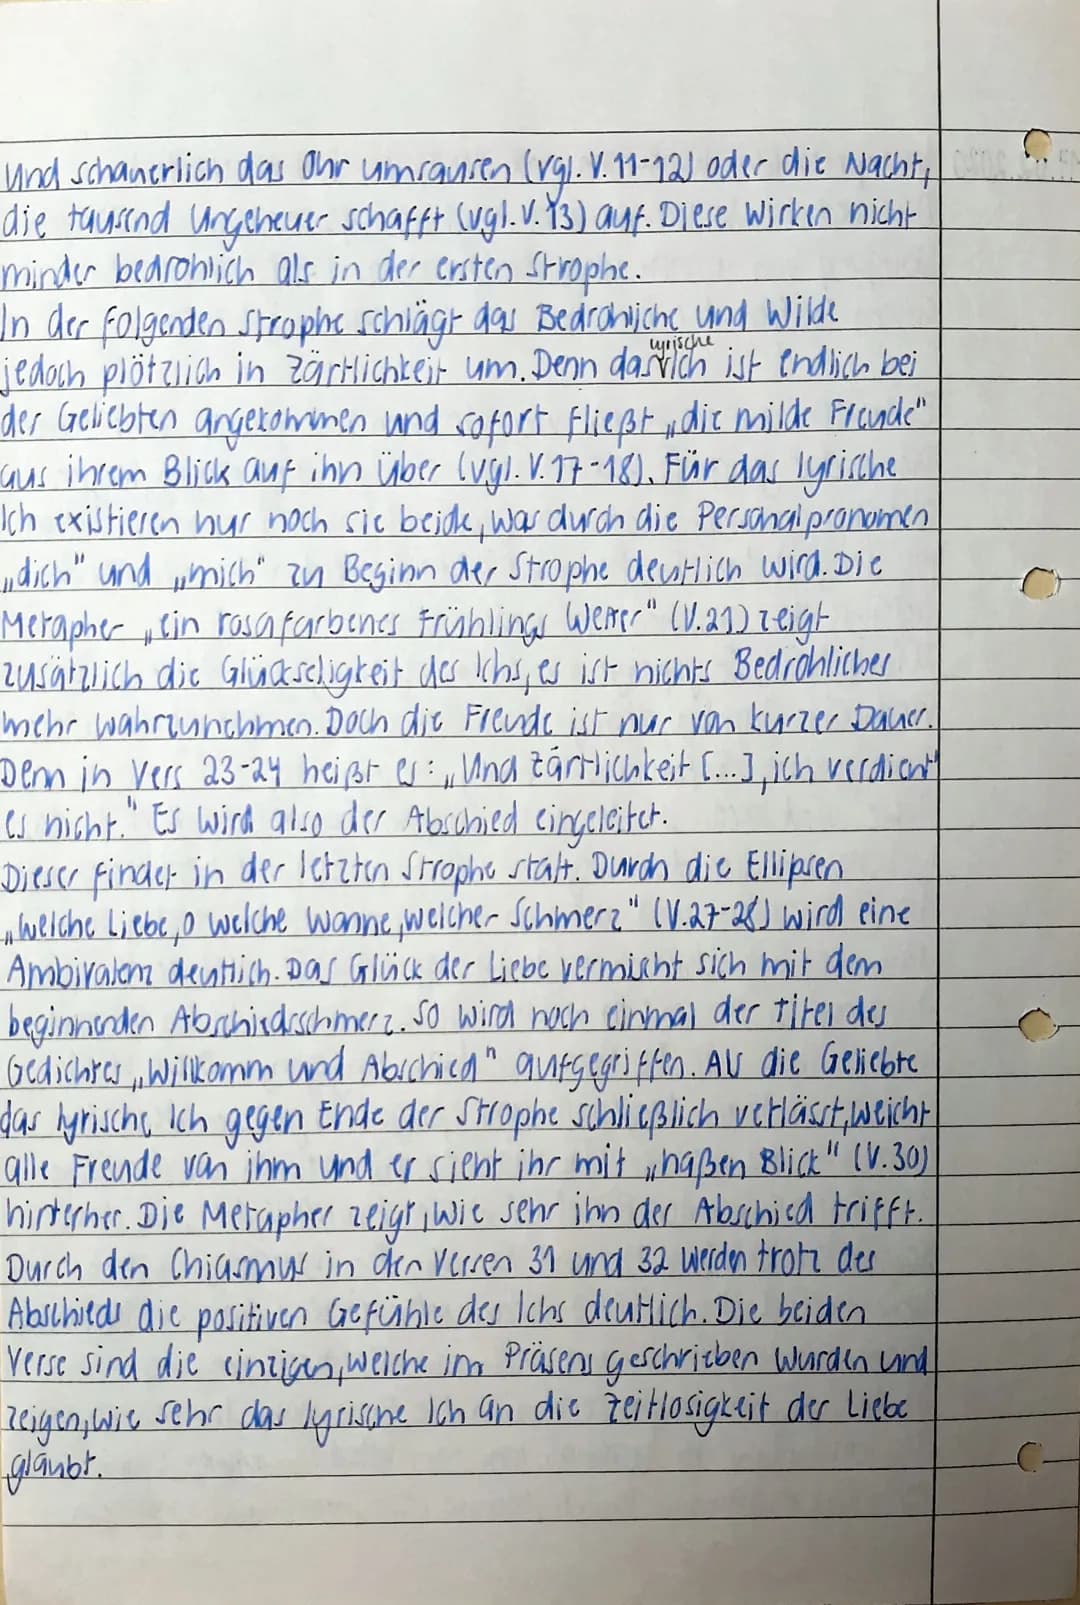 und schauerlich das Ohr umsausen (vgl. V. 11-12) oder die Nacht,
die tausend Ungeheuer schafft (vgl. V. 13) auf. Diese wirken nicht
minder bedrohlich als in der ersten Strophe.
In der folgenden Strophe schlägt das Bedrohliche und Wilde
jedoch plötzlich in Zärtlichkeit um. Denn das lyrische Ich ist endlich bei
der Geliebten angekommen und sofort fließt „die milde Freude"
aus ihrem Blick auf ihn über (vgl. V. 17-18). Für das lyrische
Ich existieren nur noch sie beide, was durch die Personalpronomen
„dich" und „mich" zu Beginn der Strophe deutlich wird. Die
Metapher „ein rosafarbenes Frühlings Wetter" (V.21) zeigt
zusätzlich die Glückseligkeit des Ichs, es ist nichts Bedrohliches
mehr wahrzunehmen. Doch die Freude ist nur von kurzer Dauer.
Denn in Vers 23-24 heißt es: „Und Zärtlichkeit [...], ich verdient'
es nicht." Es wird also der Abschied eingeleitet.
Dieser findet in der letzten Strophe statt. Durch die Ellipsen
„welche Liebe, o welche Wonne, welcher Schmerz" (V.27-28) wird eine
Ambivalenz deutlich. Das Glück der Liebe vermischt sich mit dem
beginnenden Abschiedsschmerz. So wird noch einmal der Titel des
Gedichtes „Willkomm und Abschied" aufgegriffen. Als die Geliebte
das lyrische Ich gegen Ende der Strophe schließlich verlässt, weicht
alle Freude von ihm und er sieht ihr mit „naßen Blick" (V.30)
hinterher. Die Metapher zeigt, wie sehr ihn der Abschied trifft.
Durch den Chiasmus in den Versen 31 und 32 werden trotz des
Abschieds die positiven Gefühle des Ichs deutlich. Die beiden
Verse sind die einzigen, welche im Präsens geschrieben wurden und
zeigen, wie sehr das lyrische Ich an die Zeitlosigkeit der Liebe
glaubt.